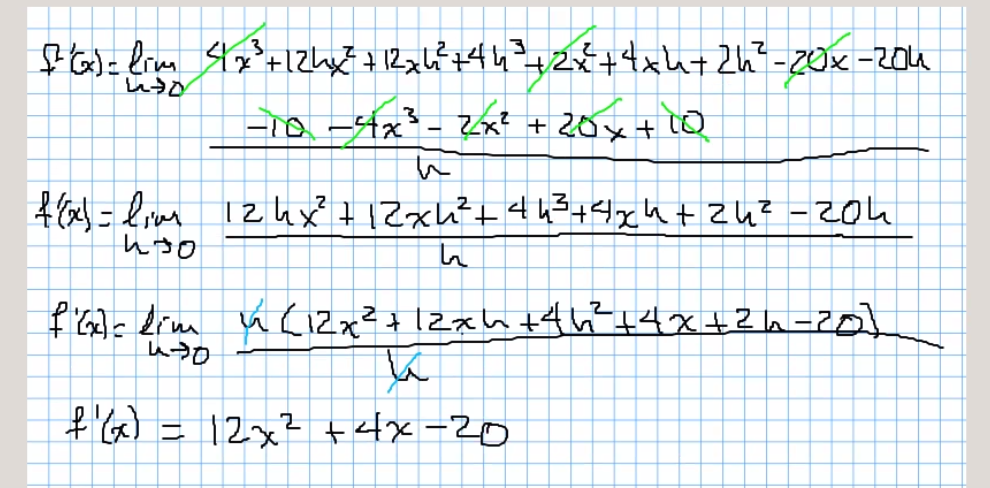 f'(x) = lim 4x³ + 12hx² + 12xh² + 4h³ + 2x² + 4xh + 2h² - 20x - 20h
h→0
-10 - 4x³ - 2x² + 20x + 10
h
f'(x) = lim 12hx² + 12xh² + 4h³ + 4xh + 2h² - 20h
h→0
h
f'(x) = lim h(12x² + 12xh + 4h² + 4x + 2h - 20)
h→0
h
f'(x) = 12x² + 4x - 20